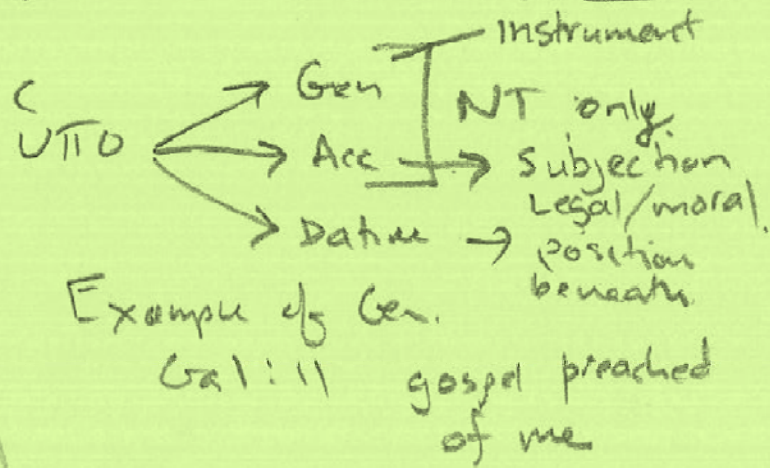 Instrument
Gen NT only.
ὑπο Acc subjection
Legal/moral.
Dative position
beneath
Example of Gen.
Gal:11 gospel preached
of me